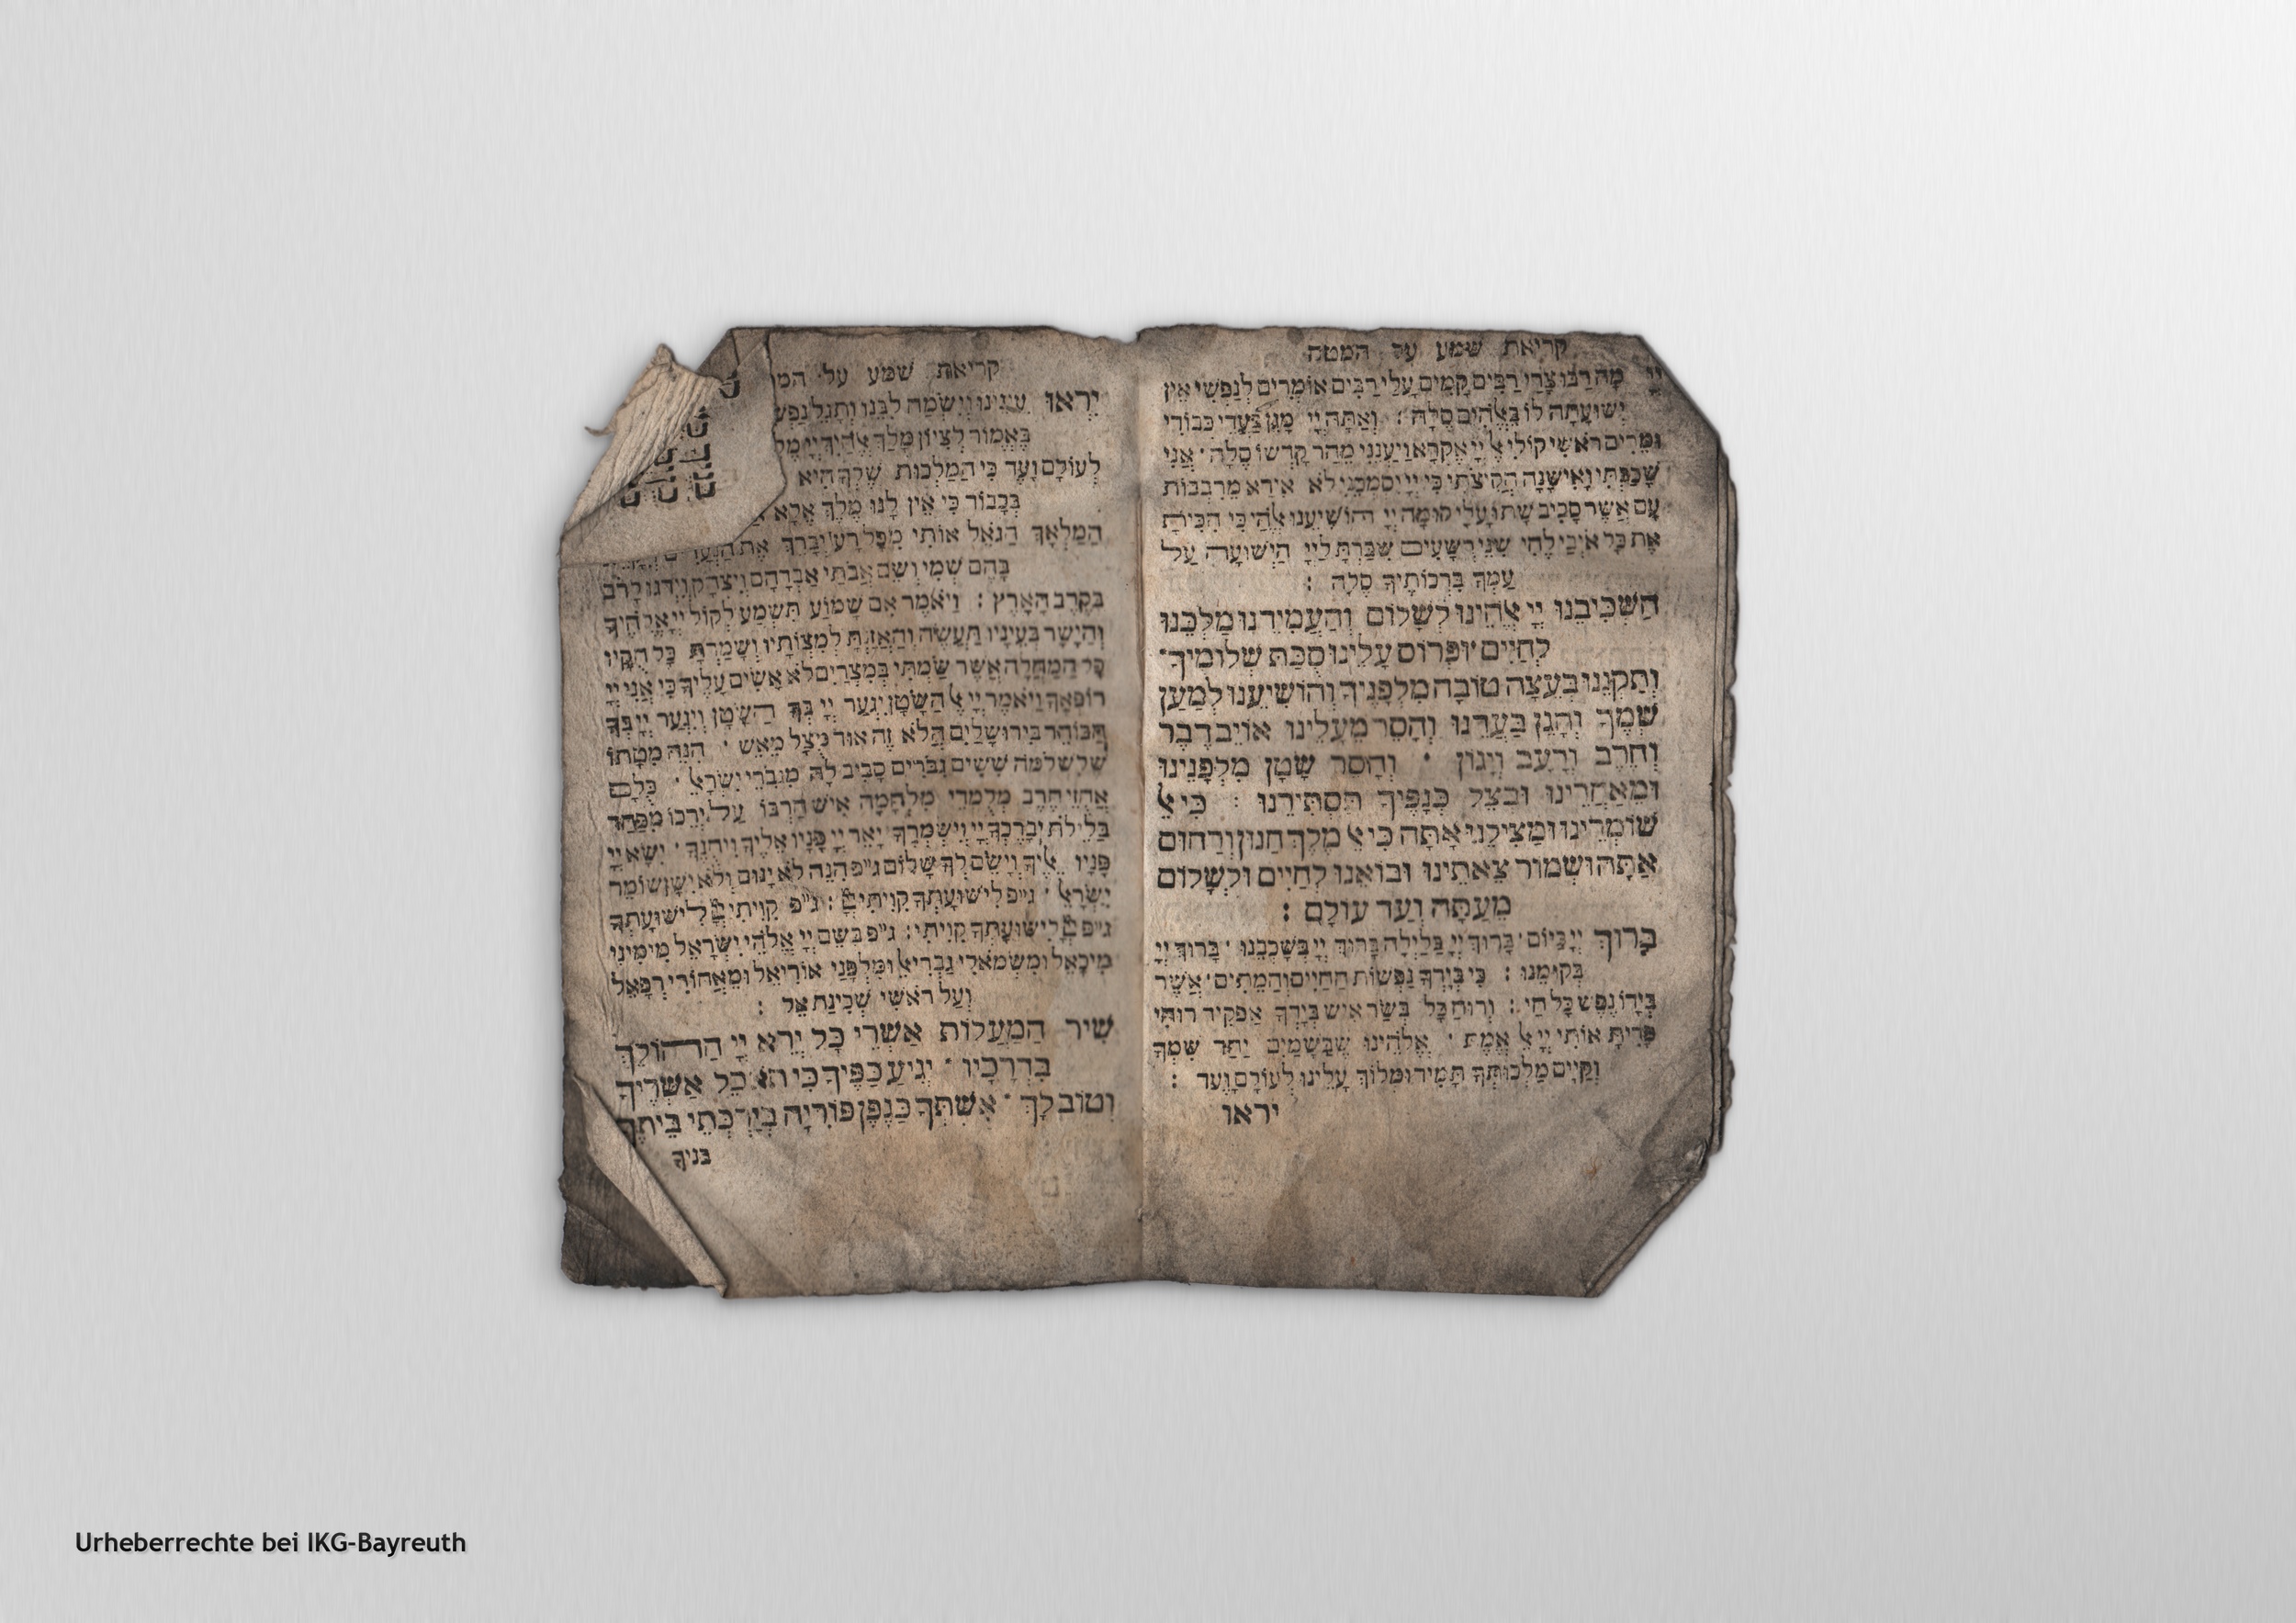 קריאת שמע על המטה
יְיָ מָה רַבּוּ צָרָי רַבִּים קָמִים עָלָי רַבִּים אוֹמְרִים לְנַפְשִׁי אֵין
יְשׁוּעָתָה לוֹ בֵּאלֹהִים סֶלָה : וְאַתָּה יְיָ מָגֵן בַּעֲדִי כְּבוֹדִי
וּמֵרִים רֹאשִׁי קוֹלִי אֶל יְיָ אֶקְרָא וַיַעֲנֵנִי מֵהַר קָדְשׁוֹ סֶלָה · אֲנִי
שָׁכַבְתִּי וָאִישָׁנָה הֱקִיצֹתִי כִּי יְיָ יִסְמְכֵנִי לֹא אִירָא מֵרִבְבוֹת
עָם אֲשֶׁר סָבִיב שָׁתוּ עָלָי קוּמָה יְיָ הוֹשִׁיעֵנִי אֱלֹהַי כִּי הִכִּיתָ
אֶת כָּל אֹיְבַי לֶחִי שִׁנֵּי רְשָׁעִים שִׁבַּרְתָּ לַיְיָ הַיְשׁוּעָה עַל
עַמְּךָ בִּרְכוֹתֶיךָ סֶלָה :
הַשְׁכִּיבֵנוּ יְיָ אֱלֹהֵינוּ לְשָׁלוֹם וְהַעֲמִידֵנוּ מַלְכֵּנוּ
לְחַיִּים וּפְרוֹס עָלֵינוּ סֻכַּת שְׁלוֹמֶיךָ ·
וְתַקְּנֵנוּ בְּעֵצָה טוֹבָה מִלְּפָנֶיךָ וְהוֹשִׁיעֵנוּ לְמַעַן
שְׁמֶךָ וְהָגֵן בַּעֲדֵנוּ וְהָסֵר מֵעָלֵינוּ אוֹיֵב דֶּבֶר
וְחֶרֶב וְרָעָב וְיָגוֹן · וְהָסֵר שָׂטָן מִלְּפָנֵינוּ
וּמֵאַחֲרֵינוּ וּבְצֵל כְּנָפֶיךָ תַּסְתִּירֵנוּ : כִּי אֵל
שׁוֹמְרֵינוּ וּמַצִּילֵנוּ אָתָּה כִּי אֵל מֶלֶךְ חַנּוּן וְרַחוּם
אַתָּה וּשְׁמוֹר צֵאתֵינוּ וּבוֹאֵנוּ לְחַיִּים וּלְשָׁלוֹם
מֵעַתָּה וְעַד עוֹלָם :
בָּרוּךְ יְיָ בַּיּוֹם · בָּרוּךְ יְיָ בַּלַּיְלָה בָּרוּךְ יְיָ בְּשָׁכְבֵנוּ · בָּרוּךְ יְיָ
בְּקוּמֵנוּ : כִּי בְיָדְךָ נַפְשׁוֹת הַחַיִּים וְהַמֵּתִים · אֲשֶׁר
בְּיָדוֹ נֶפֶשׁ כָּל חַי : וְרוּחַ כָּל בְּשַׂר אִישׁ בְּיָדְךָ אַפְקִיד רוּחִי
פָּדִיתָ אוֹתִי יְיָ אֵל אֱמֶת · אֱלֹהֵינוּ שֶׁבַּשָּׁמַיִם יַחֵד שִׁמְךָ
וְקַיֵּים מַלְכוּתְךָ תָּמִיד וּמְלוֹךְ עָלֵינוּ לְעוֹלָם וָעֶד :
יראו
קריאת שמע על המ
יִרְאוּ עֵינֵינוּ וְיִשְׂמַח לִבֵּנוּ וְתָגֵל נַפְשׁ
בֶּאֱמוֹר לְצִיּוֹן מָלַךְ אֱלֹהָיִךְ יְיָ מֶל
לְעוֹלָם וָעֶד כִּי הַמַּלְכוּת שֶׁלְּךָ הִיא
בְּכָבוֹד כִּי אֵין לָנוּ מֶלֶךְ אֶלָּא
הַמַּלְאָךְ הַגֹּאֵל אוֹתִי מִכָּל רָע יְבָרֵךְ אֶת הַנְּעָרִים
בָּהֶם שְׁמִי וְשֵׁם אֲבֹתַי אַבְרָהָם וְיִצְחָק וְיִדְגּוּ לָרֹב
בְּקֶרֶב הָאָרֶץ : וַיֹּאמֶר אִם שָׁמוֹעַ תִּשְׁמַע לְקוֹל יְיָ אֱלֹהֶיךָ
וְהַיָּשָׁר בְּעֵינָיו תַּעֲשֶׂה וְהַאֲזַנְתָּ לְמִצְוֹתָיו וְשָׁמַרְתָּ כָּל חֻקָּיו
כָּל הַמַּחֲלָה אֲשֶׁר שַׂמְתִּי בְמִצְרַיִם לֹא אָשִׂים עָלֶיךָ כִּי אֲנִי יְיָ
רוֹפְאֶךָ וַיֹּאמֶר יְיָ אֶל הַשָּׂטָן יִגְעַר יְיָ בְּךָ הַשָּׂטָן וְיִגְעַר יְיָ בְּךָ
הַבּוֹחֵר בִּירוּשָׁלַיִם הֲלֹא זֶה אוּד מֻצָּל מֵאֵשׁ · הִנֵּה מִטָּתוֹ
שֶׁלִּשְׁלֹמֹה שִׁשִּׁים גִּבֹּרִים סָבִיב לָהּ מִגִּבֹּרֵי יִשְׂרָאֵל · כֻּלָּם
אֲחֻזֵי חֶרֶב מְלֻמְּדֵי מִלְחָמָה אִישׁ חַרְבּוֹ עַל יְרֵכוֹ מִפַּחַד
בַּלֵּילֹת יְבָרֶכְךָ יְיָ וְיִשְׁמְרֶךָ יָאֵר יְיָ פָּנָיו אֵלֶיךָ וִיחֻנֶּךָּ · יִשָּׂא יְיָ
פָּנָיו אֵלֶיךָ וְיָשֵׂם לְךָ שָׁלוֹם ג״פ הִנֵּה לֹא יָנוּם וְלֹא יִישָׁן שׁוֹמֵר
יִשְׂרָאֵל · ג״פ לִישׁוּעָתְךָ קִוִּיתִי יְיָ : ג״פ קִוִּיתִי יְיָ לִישׁוּעָתְךָ
ג״פ יְיָ לִישׁוּעָתְךָ קִוִּיתִי : ג״פ בְּשֵׁם יְיָ אֱלֹהֵי יִשְׂרָאֵל מִימִינִי
מִיכָאֵל וּמִשְּׂמֹאלִי גַּבְרִיאֵל וּמִלְּפָנַי אוּרִיאֵל וּמֵאֲחוֹרַי רְפָאֵל
וְעַל רֹאשִׁי שְׁכִינַת אֵל :
שִׁיר הַמַּעֲלוֹת אַשְׁרֵי כָּל יְרֵא יְיָ הַהוֹלֵךְ
בִּדְרָכָיו · יְגִיעַ כַּפֶּיךָ כִּי תֹאכֵל אַשְׁרֶיךָ
וְטוֹב לָךְ · אֶשְׁתְּךָ כְּגֶפֶן פּוֹרִיָּה בְּיַרְכְּתֵי בֵיתֶךָ
בניך
Urheberrechte bei IKG-Bayreuth